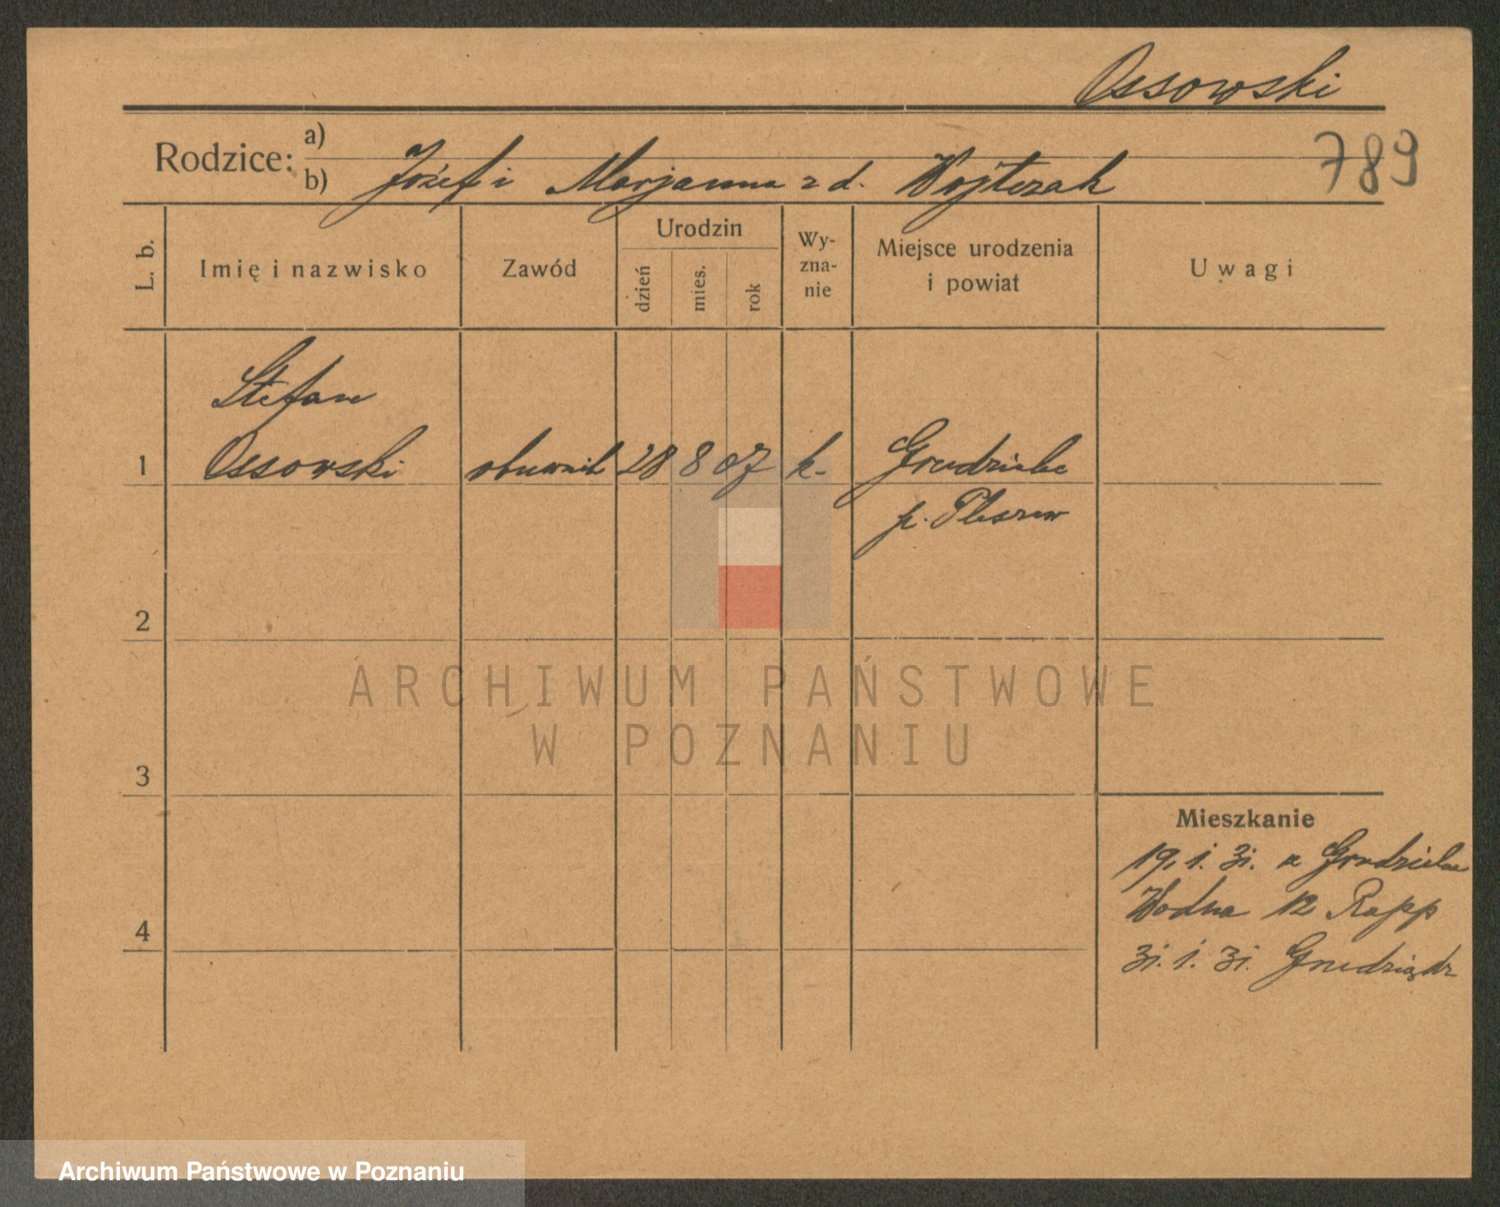 Ossowski
789
Rodzice: a)
b) Józef i Marjanna z d. Wojtczak
L. b.
Imię i nazwisko
Zawód
Urodzin
dzień
mies.
rok
Wy-
zna-
nie
Miejsce urodzenia
i powiat
Uwagi
Stefan
1 Ossowski obuwnik 28 8 07 k. Grudzielec
p. Pleszew
2
3
4
Mieszkanie
19. 1. 31. z Grudzielca
Wodna 12 Rapp
31. 1. 31. Grudziądz
ARCHIWUM PAŃSTWOWE
W POZNANIU
Archiwum Państwowe w Poznaniu